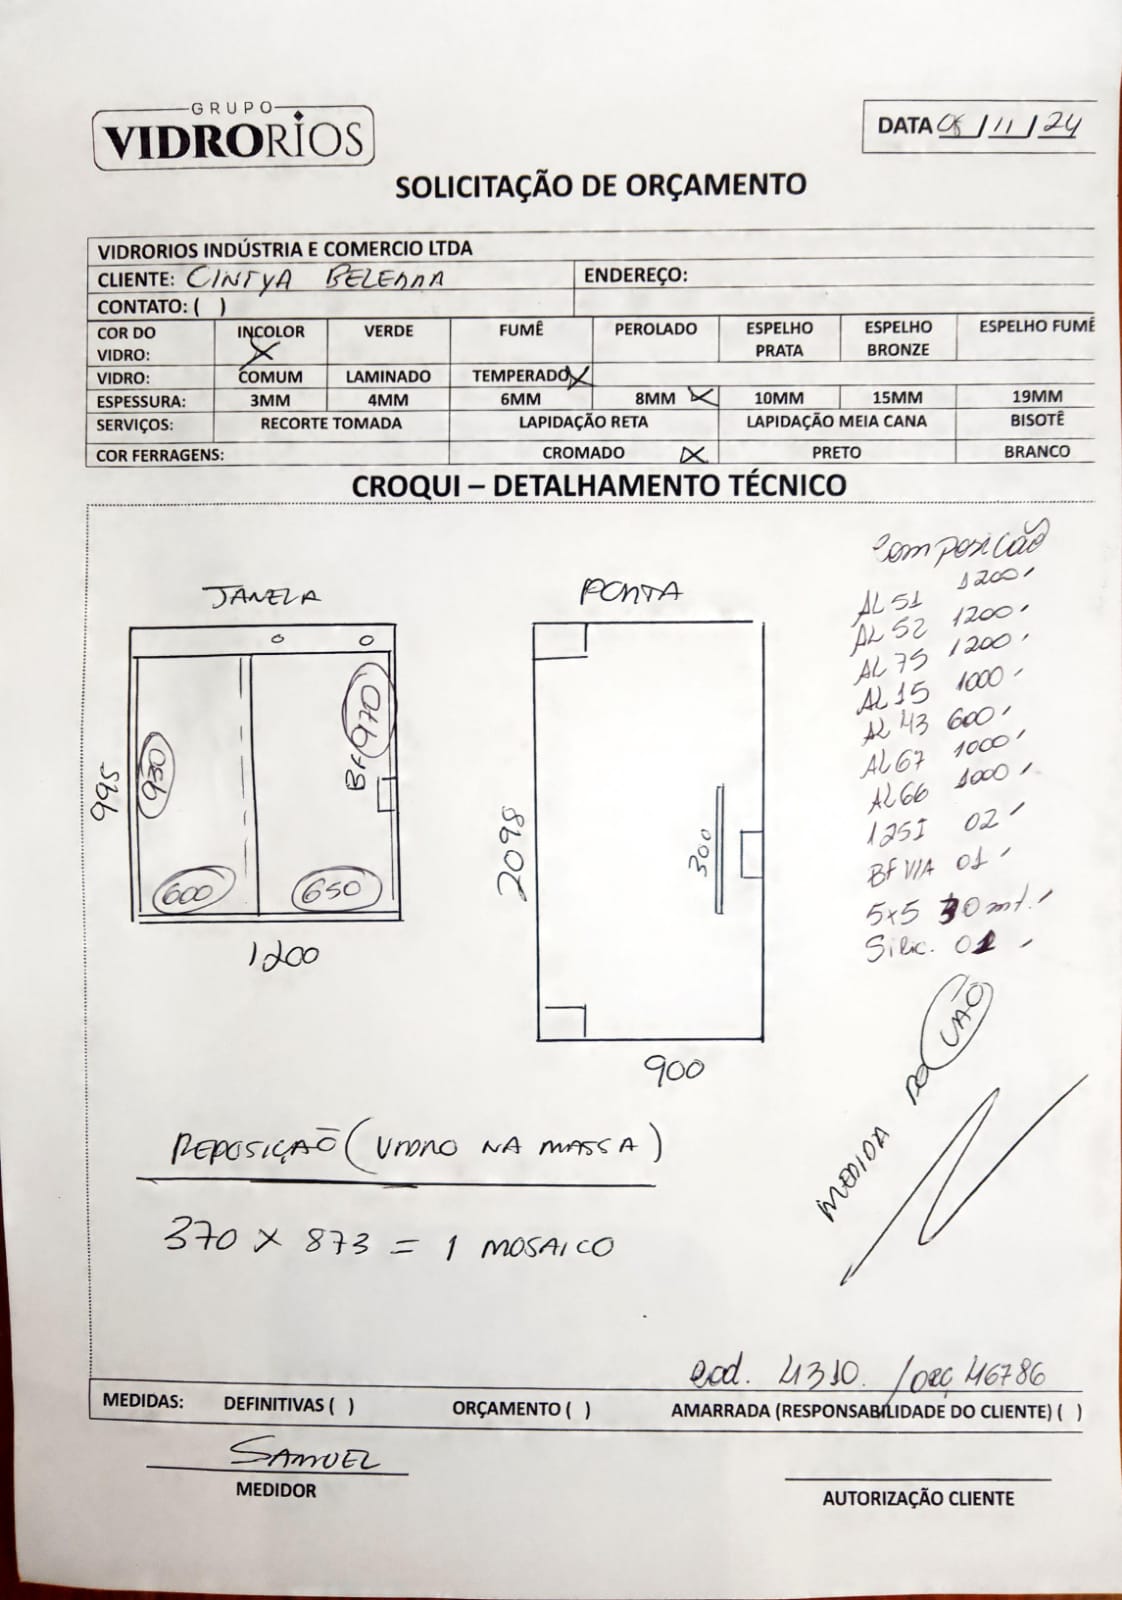 GRUPO
VIDRORIOS
DATA 05/11/24
SOLICITAÇÃO DE ORÇAMENTO
VIDRORIOS INDÚSTRIA E COMERCIO LTDA
CLIENTE: CINTYA ENDEREÇO:
CONTATO: ( )
COR DO VIDRO: INCOLOR X VERDE FUMÊ PEROLADO ESPELHO PRATA ESPELHO BRONZE ESPELHO FUMÊ
VIDRO: COMUM LAMINADO TEMPERADO X
ESPESSURA: 3MM 4MM 6MM 8MM X 10MM 15MM 19MM
SERVIÇOS: RECORTE TOMADA LAPIDAÇÃO RETA LAPIDAÇÃO MEIA CANA BISOTÊ
COR FERRAGENS: CROMADO X PRETO BRANCO
CROQUI – DETALHAMENTO TÉCNICO
JANELA
995
930
BF 970
600
650
1200
PORTA
2098
300
900
Composicão
AL 51 1200
AL 52 1200
AL 75 1200
AL 15 1000
AL 43 600
AL 67 1000
AL 66 1000
125I 02
BF V/A 01
5x5 30 mt.
Silic. 01
MEDIDA DO VÃO
REPOSIÇÃO (VIDRO NA MASSA)
370 X 873 = 1 MOSAICO
cod. 4310. /orç 46786
MEDIDAS: DEFINITIVAS ( ) ORÇAMENTO ( ) AMARRADA (RESPONSABILIDADE DO CLIENTE) ( )
SAMUEL
MEDIDOR
AUTORIZAÇÃO CLIENTE